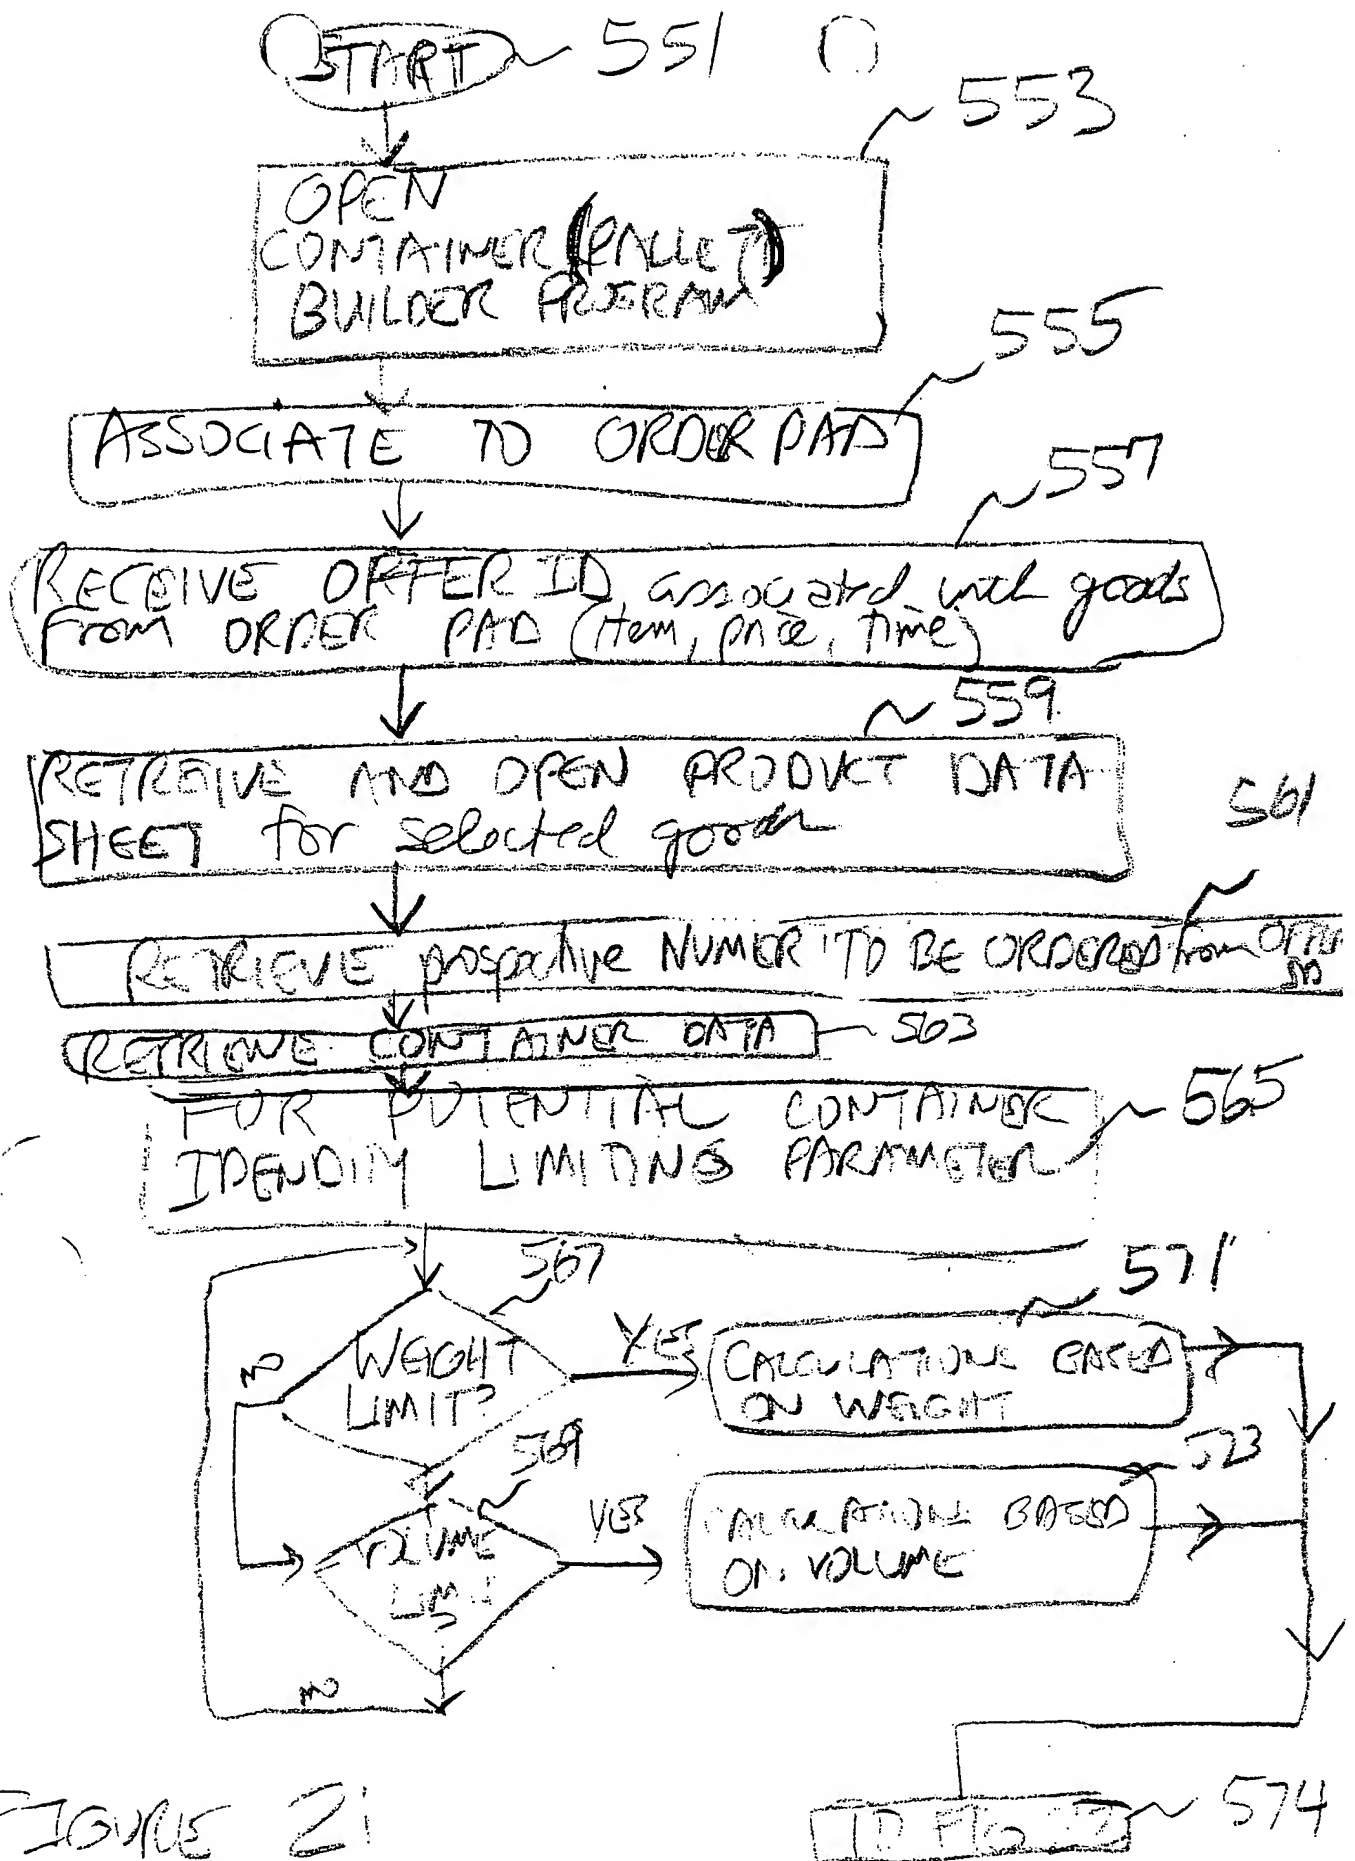 START 551
553
OPEN
CONTAINER (PALLET)
BUILDER PROGRAM
555
ASSOCIATE TO ORDER PAD
557
RECEIVE OFFER ID associated with goods
From ORDER PAD (item, price, time)
559
RETREIVE AND OPEN PRODUCT DATA
SHEET for selected goods
561
RETRIEVE prospective NUMER TO BE ORDERED from
RETRIEVE CONTAINER DATA 563
FOR POTENTIAL CONTAINER 565
IDENDIFY LIMITING PARAMETER
567
571
WEIGHT
LIMIT?
NO
YES
CALCULATIONS BASED
ON WEIGHT
569
573
VOLUME
LIMIT
?
YES
CALCULATIONS BASED
ON VOLUME
NO
FIGURE 21
TO FIG 574